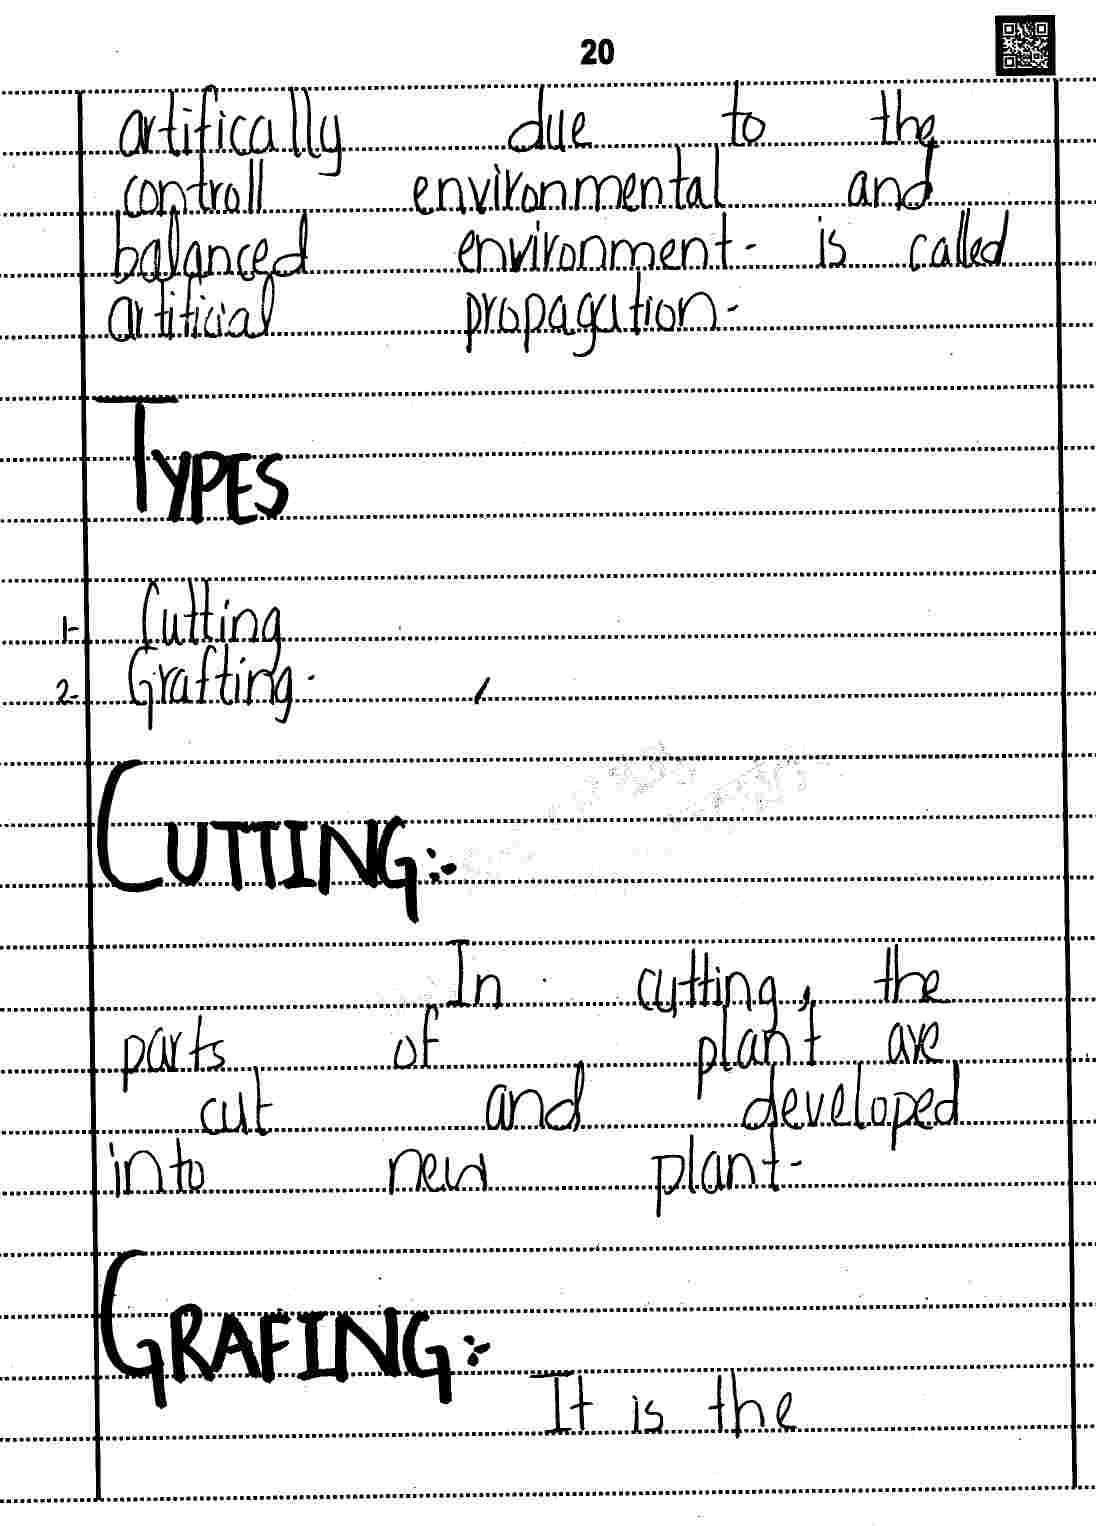 20
artifically due to the
controll environmental and
balanced environment. is called
artificial propagation.
TYPES
1- Cutting
2- Grafting.
CUTTING:-
In cutting, the
parts of plant are
cut and developed
into new plant.
GRAFING:-
It is the